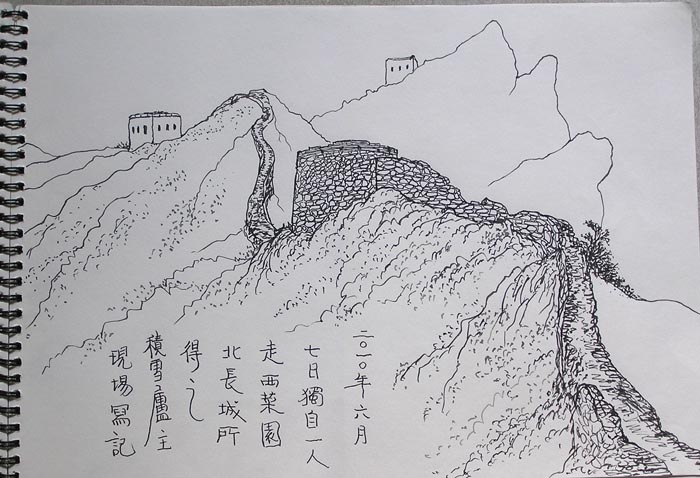 二〇一〇年六月
七日獨自一人
走西菜園
北長城所
得之
積雪廬主
現場寫記